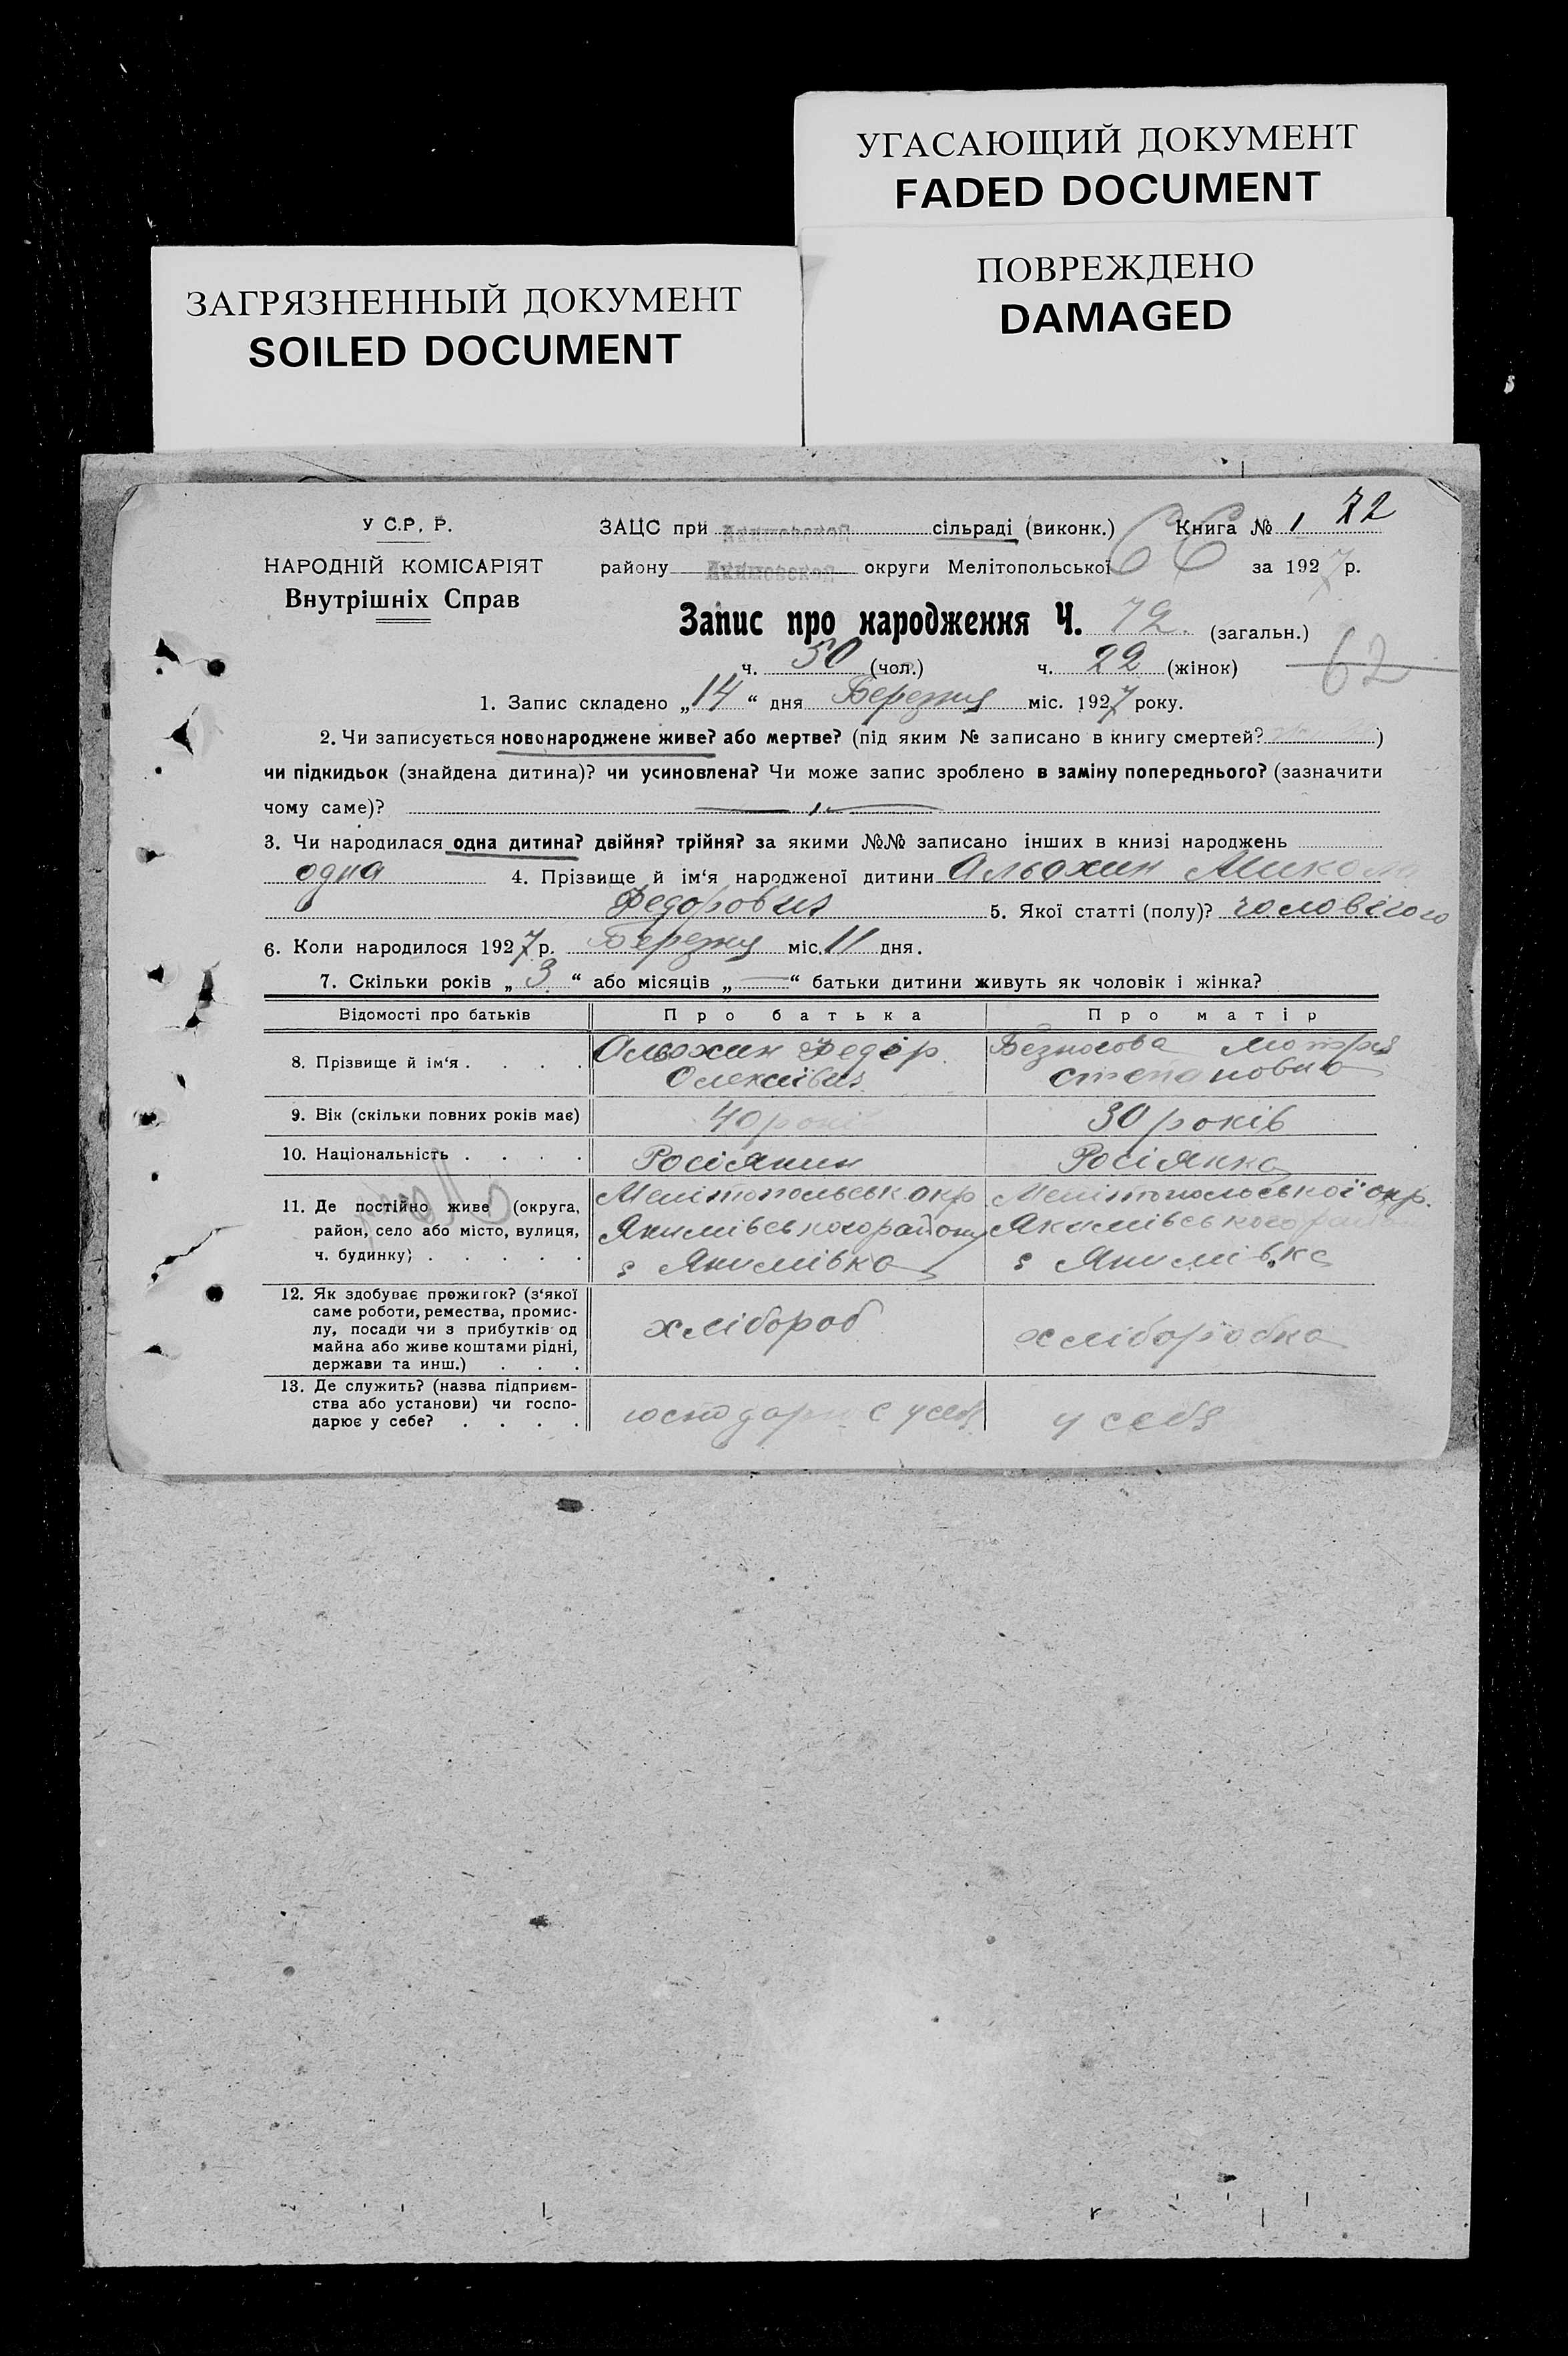 УГАСАЮЩИЙ ДОКУМЕНТ
FADED DOCUMENT
ПОВРЕЖДЕНО
DAMAGED
ЗАГРЯЗНЕННЫЙ ДОКУМЕНТ
SOILED DOCUMENT
У С.Р. Р.
НАРОДНІЙ КОМІСАРІЯТ
Внутрішніх Справ
ЗАЦС при Акимовской сільраді (виконк.) Книга № 1 72
району Акимовской округи Мелітопольської 66 за 1927 р.
Запис про народження Ч. 72. (загальн.)
ч. 50 (чол.) ч. 22 (жінок) 62
1. Запис складено „14“ дня Березня міс. 1927 року.
2. Чи записується новонароджене живе? або мертве? (під яким № записано в книгу смертей? )
чи підкидьок (знайдена дитина)? чи усиновлена? Чи може запис зроблено в заміну попереднього? (зазначити
чому саме)?
3. Чи народилася одна дитина? двійня? трійня? за якими №№ записано інших в книзі народжень
одна 4. Прізвище й ім‘я народженої дитини Альохин Микола
Федорович 5. Якої статті (полу)? чоловічого
6. Коли народилося 1927 р. Березня міс. 11 дня.
7. Скільки років „ 3 “ або місяців „ — “ батьки дитини живуть як чоловік і жінка?
Відомості про батьків Про батька Про матір
8. Прізвище й ім‘я . . . . Альохин Федір Безносова Мотря
Олексієвич Степановна
9. Вік (скільки повних років має) 40 років 30 років
10. Національність . . . . Росіянин Росіянка
11. Де постійно живе (округа, Мелітопольськ. окр Мелітопольської окр.
район, село або місто, вулиця, Якимівського району Якимівського району
ч. будинку) . . . . . с Якимівка с Якимівка
12. Як здобуває прожиток? (з‘якої
саме роботи, ремества, промис-
лу, посади чи з прибутків од хлібороб хлібороби
майна або живе коштами рідні,
держави та инш.) . . .
13. Де служить? (назва підприєм-
ства або установи) чи госпо- господарює у себе у себе
дарює у себе? . . . .